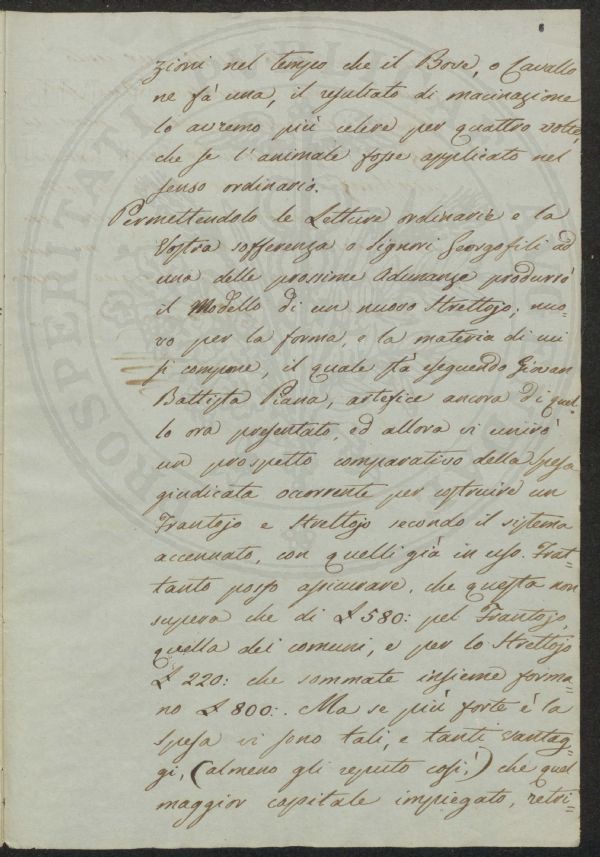 6
zioni nel tempo che il Bove, o Cavallo
ne fà una, il resultato di macinazione
lo avremo più celere per quattro volte,
che se l'animale fosse applicato nel
senso ordinario.
Permettendolo le Letture ordinarie e la
Vostra sofferenza o Signori Georgofili ad
una delle prossime Adunanze produrrò
il Modello di un nuovo Strettojo; nuo=
vo per la forma, e la materia di cui
si compone, il quale stà eseguendo Giovan
Battista Piana, artefice ancora di quel=
lo ora presentato, ed allora vi unirò
un prospetto comparativo della spesa
giudicata ocorrente per costruire un
Frantojo e Strettojo secondo il sistema
accennato, con quelli già in uso. Frat=
tanto posso assicurare, che questa non
supera che di £ 580: pel Frantojo,
quella dei comuni, e per lo Strettojo
£ 220: che sommate insieme forma=
no £ 800:. Ma se più forte è la
spesa vi sono tali, e tanti vantag=
gi, (almeno gli reputo così,) che quel
maggior capitale impiegato, retri=
PROSPERITATI PUBLICAE